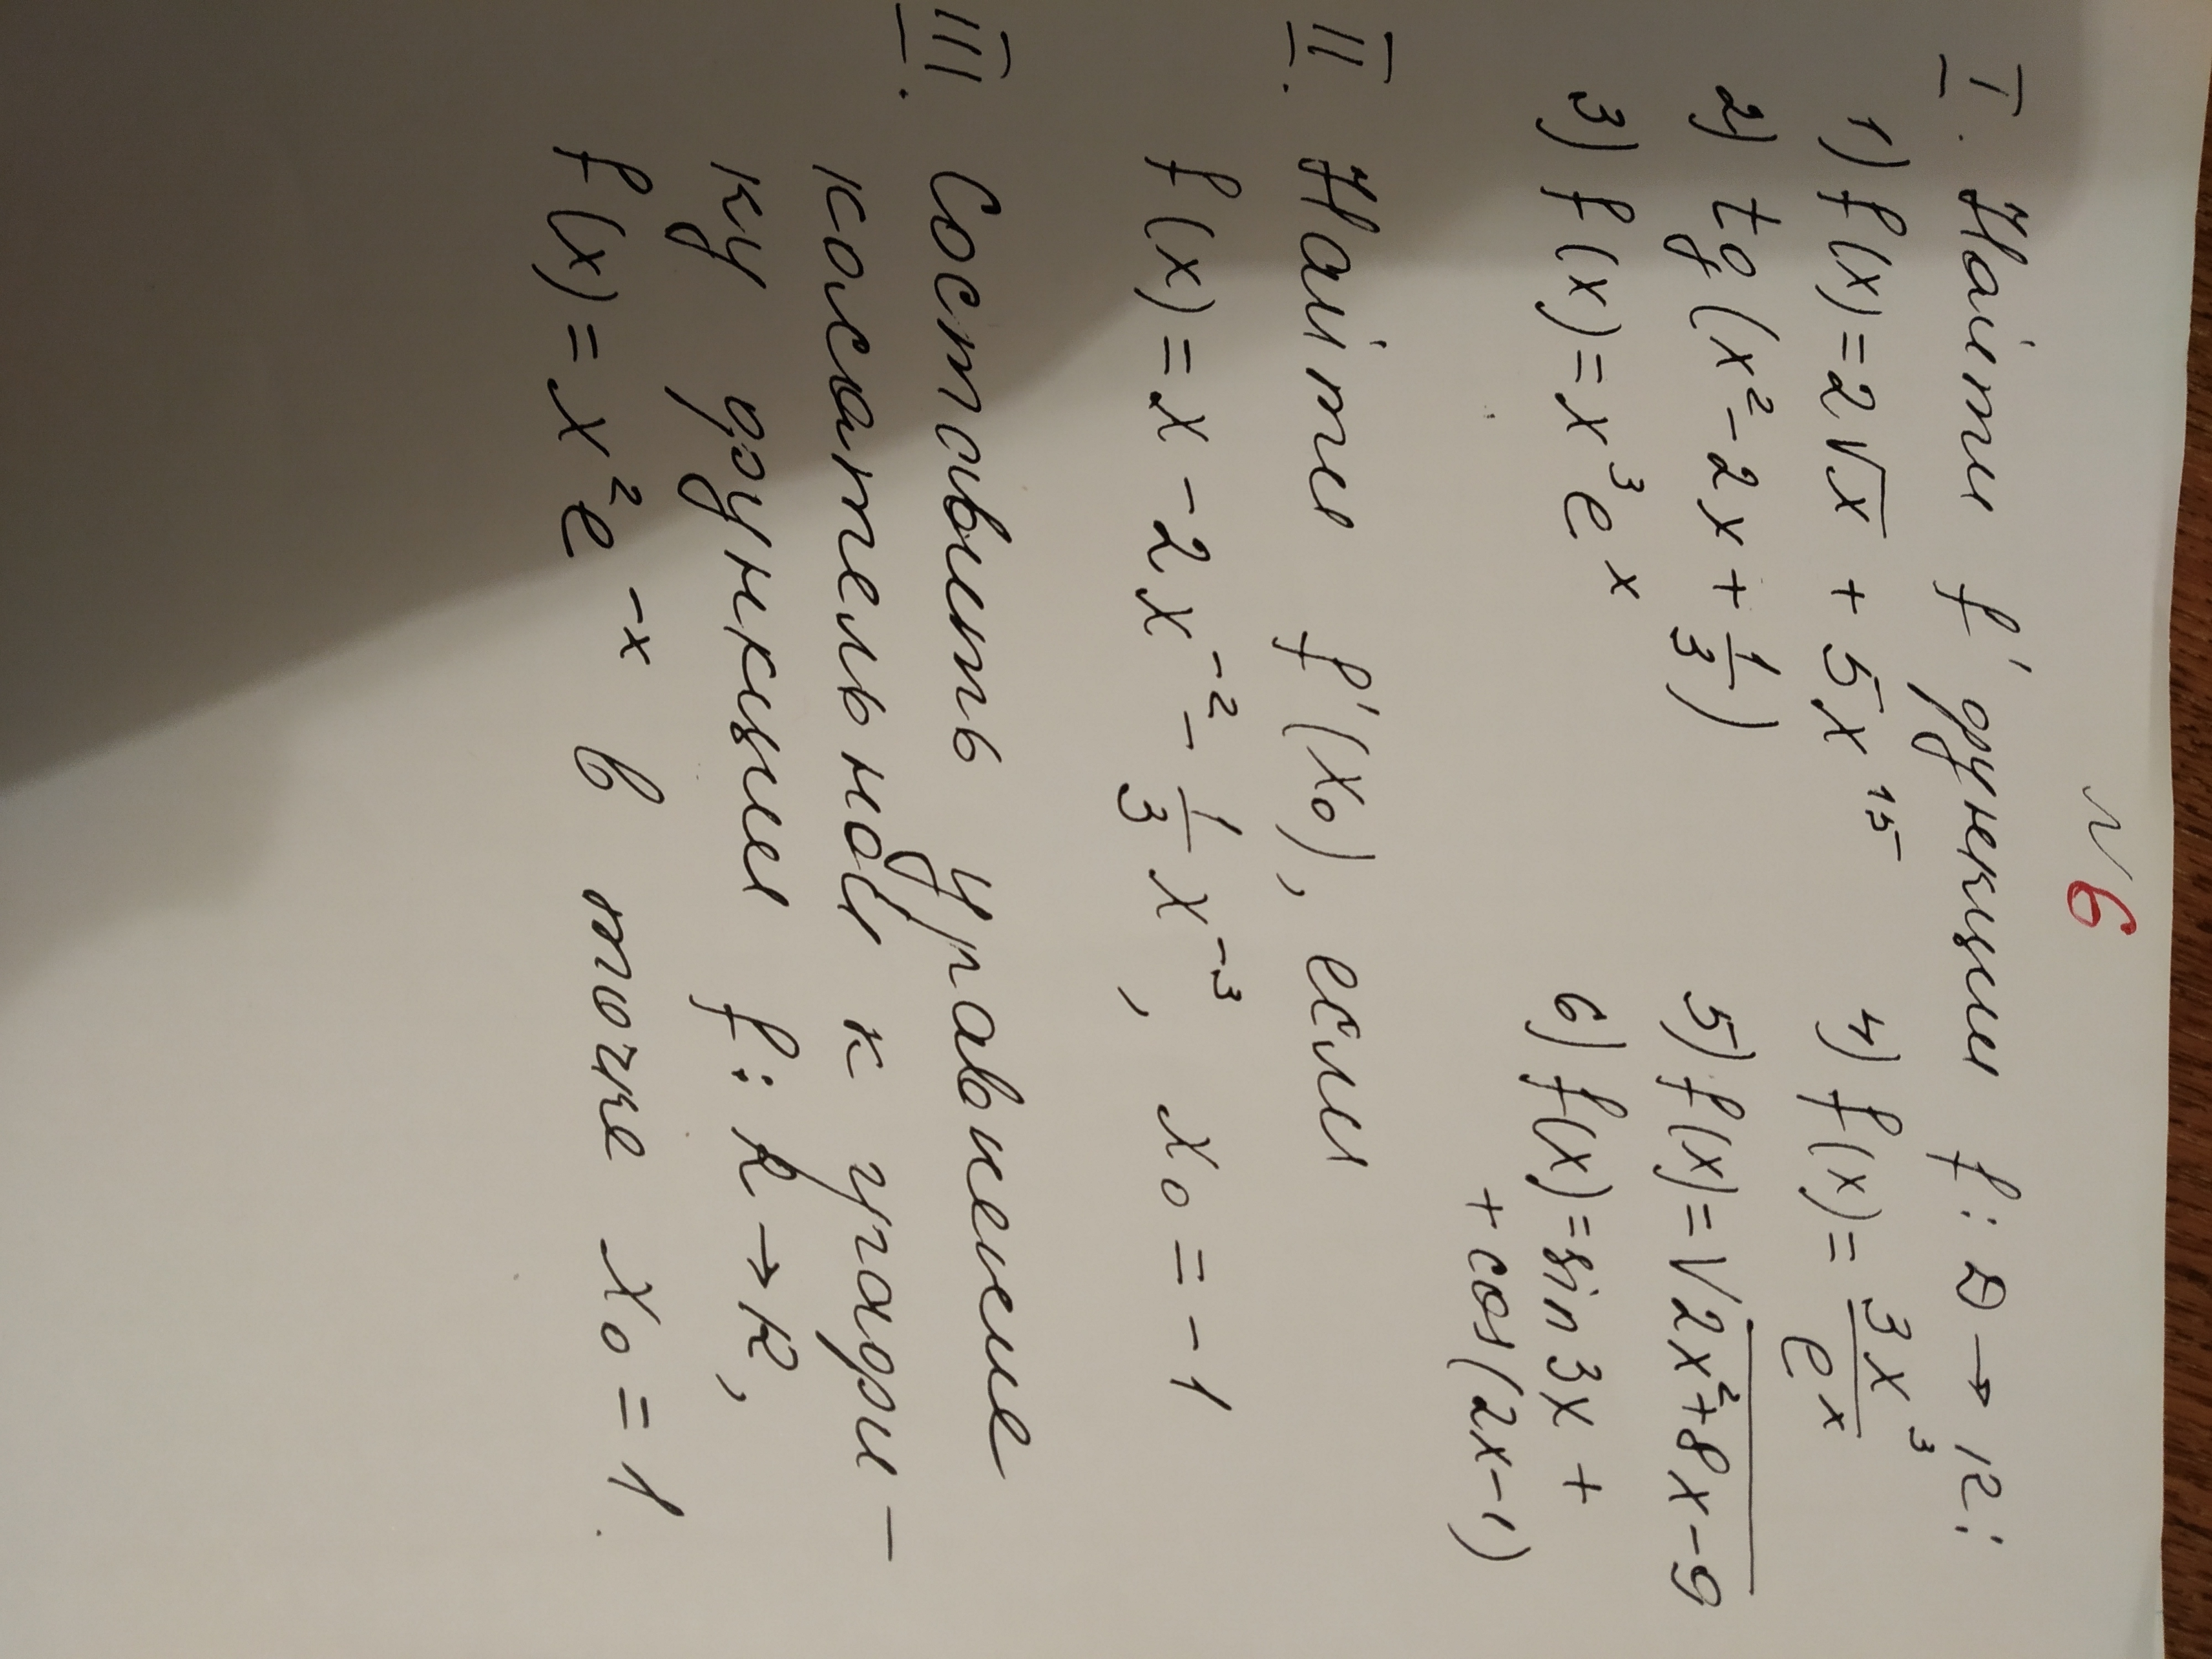 N6
I. Найти f' функции f: D → R:
1) f(x) = 2√x + 5x¹⁵
2) tg(x² - 2x + 1/3)
3) f(x) = x³eˣ
4) f(x) = 3x³/eˣ
5) f(x) = √(2x² + 8x - 9)
6) f(x) = sin 3x +
+ cos(2x-1)
II. Найти f'(x₀), если
f(x) = x - 2x⁻² - 1/3 x⁻³, x₀ = -1
III. Составить уравнение
касательной к графи-
ку функции f: R → R,
f(x) = x²e⁻ˣ в точке x₀ = 1.